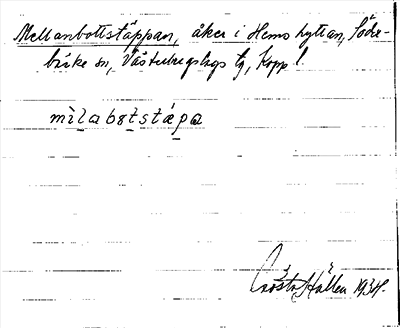 Mellanbottstäppan, åker i Hemshyttan, Söder-
bärke sn, Västerbergslags tg, Kopp. l.
mìlabɞtstǽpa
Gösta Hallen 1934.